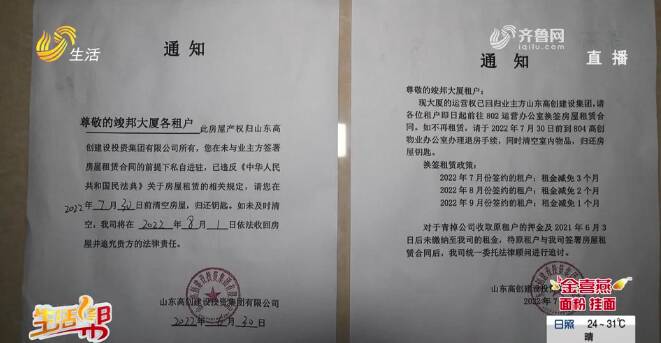 生活
齐鲁网
iqilu.com
直播
通知
尊敬的竣邦大厦各租户
此房屋产权归山东高
创建设投资集团有限公司所有，您在未与业主方签署
房屋租赁合同的前提下私自进驻，已违反《中华人民
共和国民法典》关于房屋租赁的相关规定，请您在
2022年7月30日前清空房屋，归还钥匙。如未及时清
空，我司将在 2022 年 8 月 1 日依法收回房
屋并追究贵方的法律责任。
山东高创建设投资集团有限公司
2022年6月30日
通知
尊敬的竣邦大厦租户：
现大厦的运营权已回归业主方山东高创建设集团，请
各位租户即日起前往 802 运营办公室换签房屋租赁合
同。如不再租赁，请于 2022 年 7 月 30 日前到 804 高创
物业办公室办理退房手续，同时清空室内物品，归还房
屋钥匙。
换签租赁政策：
2022 年 7 月份签约的租户：租金减免 3 个月
2022 年 8 月份签约的租户：租金减免 2 个月
2022 年 9 月份签约的租户：租金减免 1 个月
对于青掉公司收取原租户的押金及 2021 年 6 月 3
日后未缴纳至我司的租金，待原租户与我司签署房屋租
赁合同后，我司统一委托法律顾问进行追讨。
山东高创建设投
2022 年 7
生活帮
金喜燕
面粉 挂面
日照 24~31℃
晴